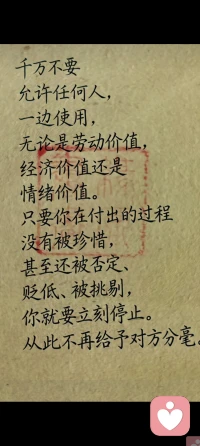 千万不要
允许任何人，
一边使用，
无论是劳动价值，
经济价值还是
情绪价值。
只要你在付出的过程
没有被珍惜，
甚至还被否定、
贬低、被挑剔，
你就要立刻停止。
从此不再给予对方分毫。